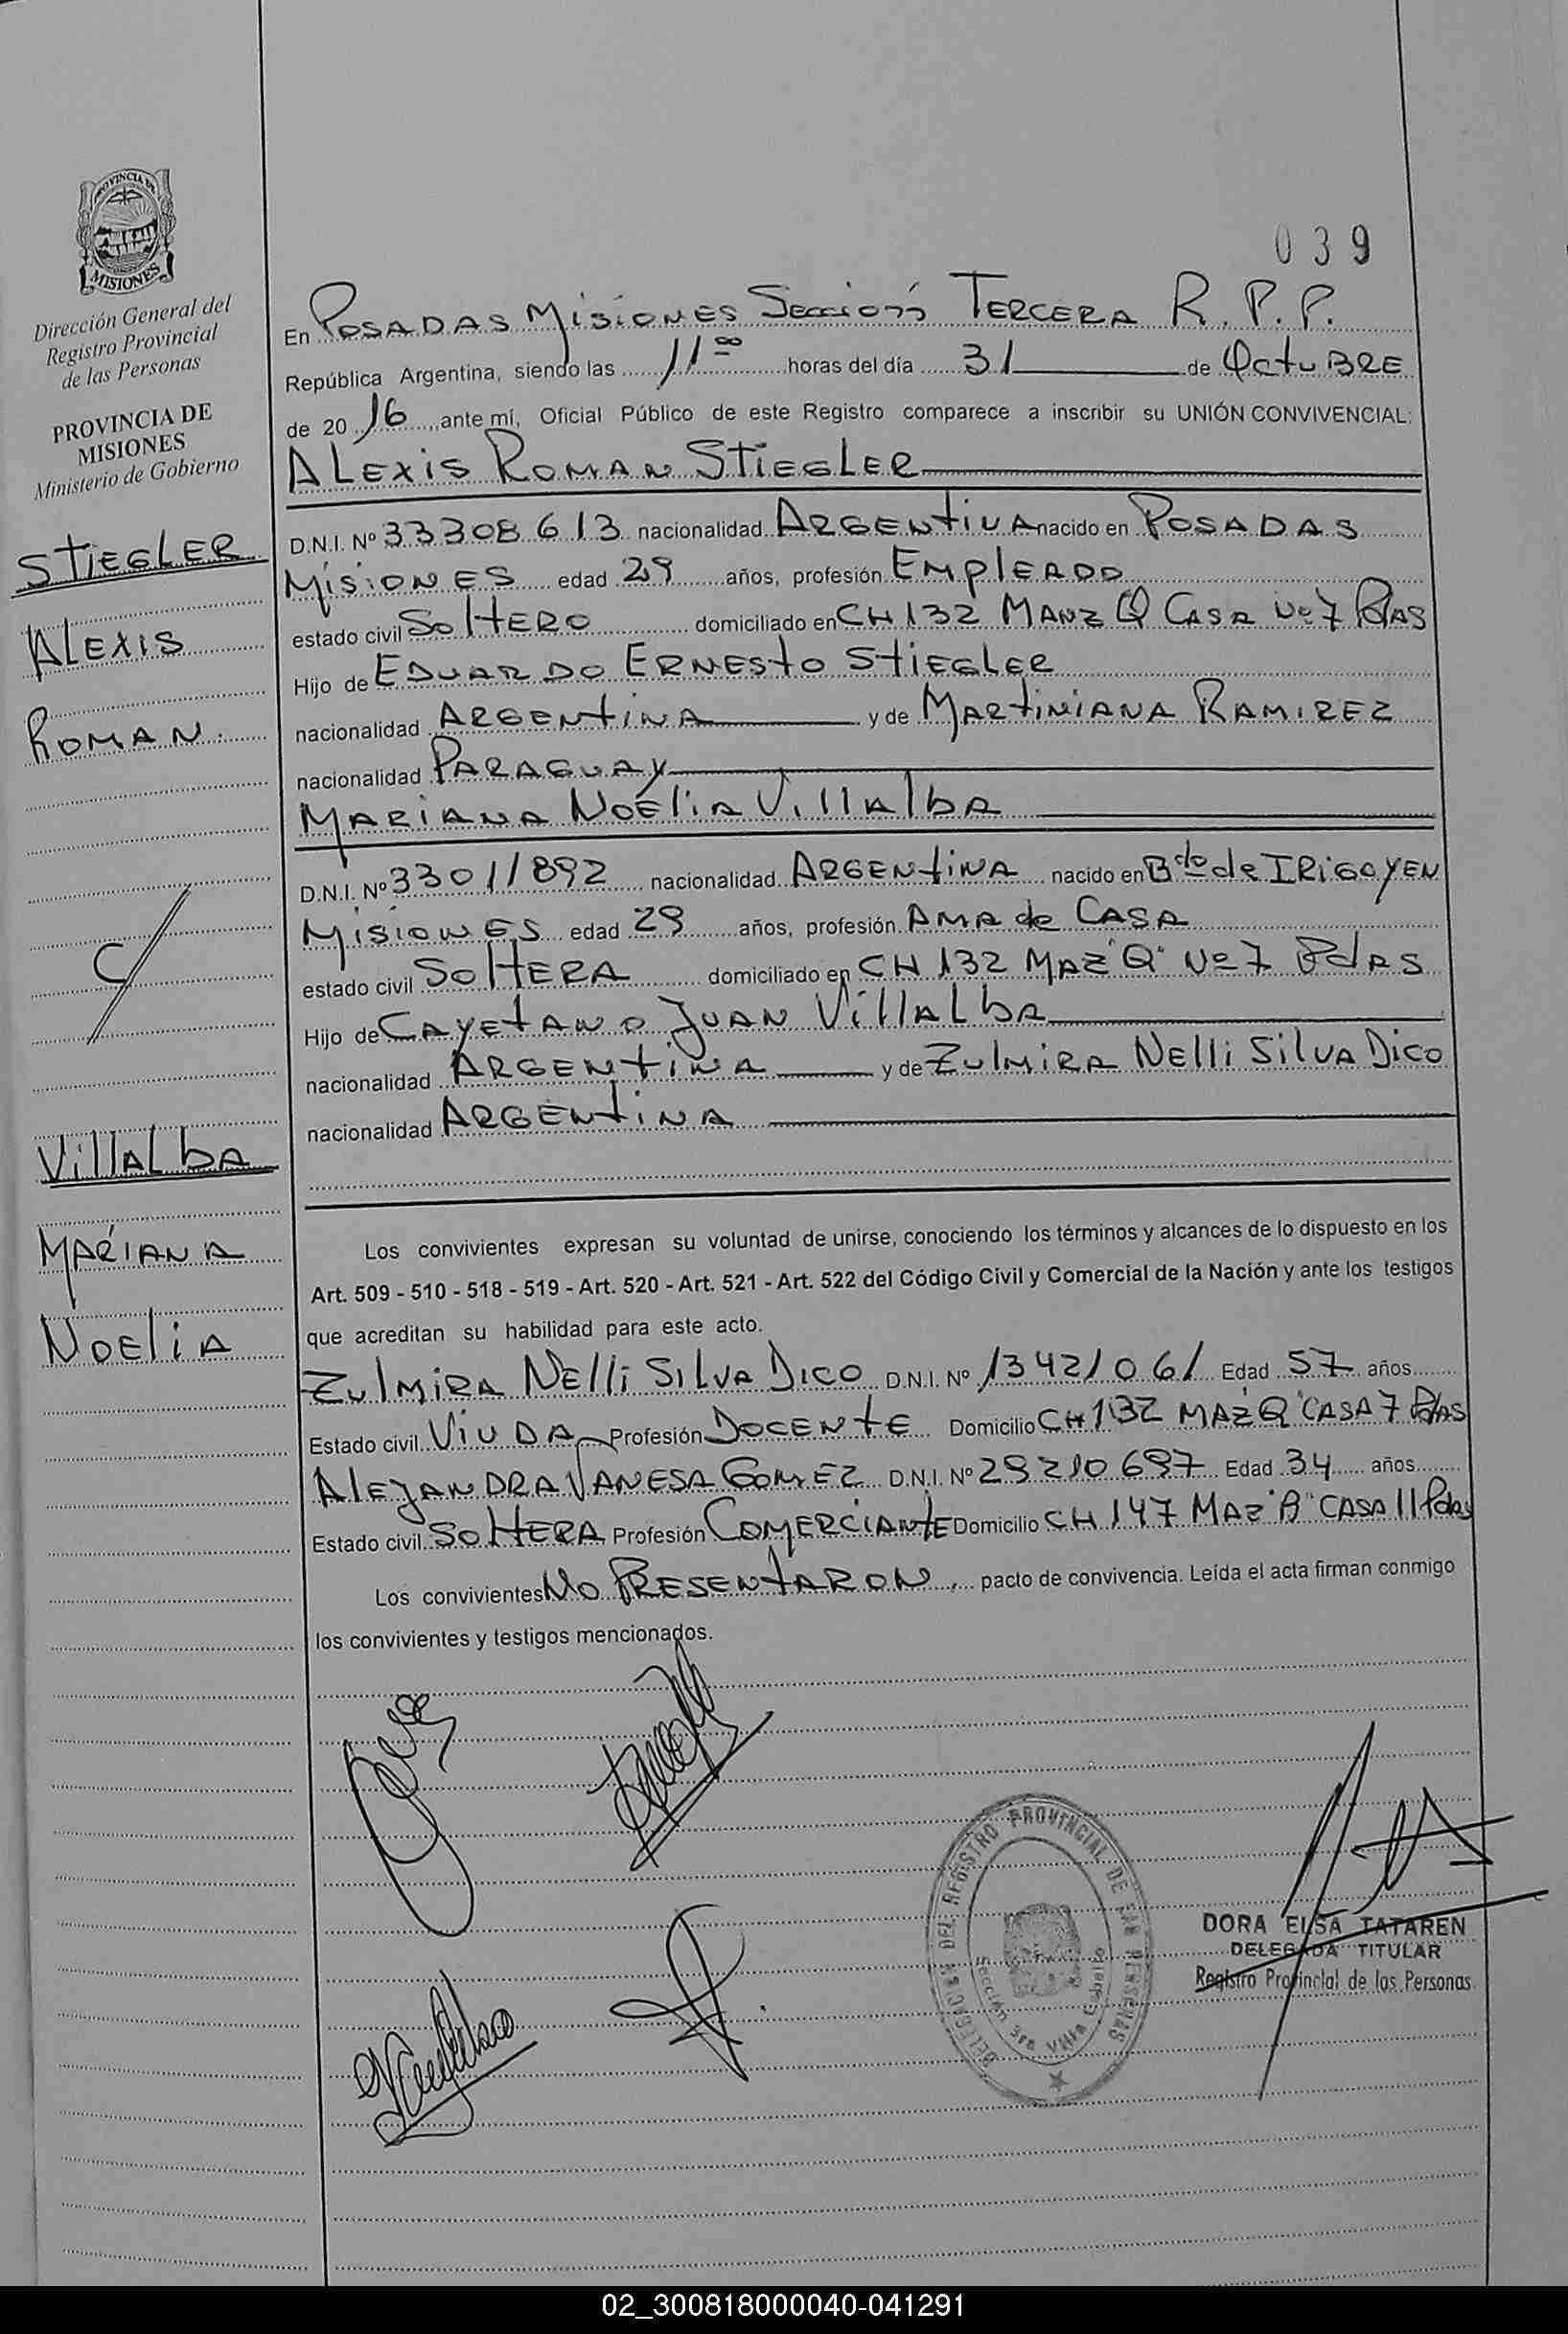 PROVINCIA DE
MISIONES
Dirección General del
Registro Provincial
de las Personas
PROVINCIA DE
MISIONES
Ministerio de Gobierno
STIEGLER
ALEXIS
ROMAN.
C/
VillALbA
MARIANA
NOEliA
039
En POSADAS MISIONES Sección TERCERA R.P.P.
República Argentina, siendo las 11 00 horas del día 31 de OctuBRE
de 20 16 ante mí, Oficial Público de este Registro comparece a inscribir su UNIÓN CONVIVENCIAL:
ALEXIS ROMAN STIEGLER
D.N.I. Nº 33308613 nacionalidad ARGENtiNA nacido en POSADAS
MISIONES edad 29 años, profesión EMPlEADO
estado civil SoltERO domiciliado en CH 132 MANZ Q CASA Nº 7 PdAS
Hijo de EDUARDO ERNESto StiEGLER
nacionalidad ARGENtiNA y de MARtiNIANA RAMIREZ
nacionalidad PARAGUAY
MARIANA NOÉliA VillAlbA
D.N.I. Nº 33011892 nacionalidad ARGENtiNA nacido en Bdo de IRIGOYEN
MISIONES edad 29 años, profesión AMA de CASA
estado civil SoltERA domiciliado en CH 132 MAZ "Q" Nº 7 PdAS
Hijo de CAYEtANO JUAN VillALbA
nacionalidad ARGENtiNA y de ZulMIRA NElli SilVA DICO
nacionalidad ARGENtiNA
Los convivientes expresan su voluntad de unirse, conociendo los términos y alcances de lo dispuesto en los
Art. 509 - 510 - 518 - 519 - Art. 520 - Art. 521 - Art. 522 del Código Civil y Comercial de la Nación y ante los testigos
que acreditan su habilidad para este acto.
ZulMIRA NElli SILVA DICO D.N.I. Nº 13421061 Edad 57 años
Estado civil VIUDA Profesión DOCENtE Domicilio CH 132 MAZ "Q" CASA 7 PdAS
AlEJANDRA VANESA GOMEZ D.N.I. Nº 29210697 Edad 34 años
Estado civil SoltERA Profesión COMERCIANtE Domicilio CH 147 MAZ "B" CASA 11 Pdas
Los convivientes NO PRESENtARON, pacto de convivencia. Leída el acta firman conmigo
los convivientes y testigos mencionados.
DELEGACION DEL REGISTRO PROVINCIAL DE LAS PERSONAS
Sección 3ra Villa Cabello
DORA ELSA TATAREN
DELEGADA TITULAR
Registro Provincial de las Personas
02_300818000040-041291